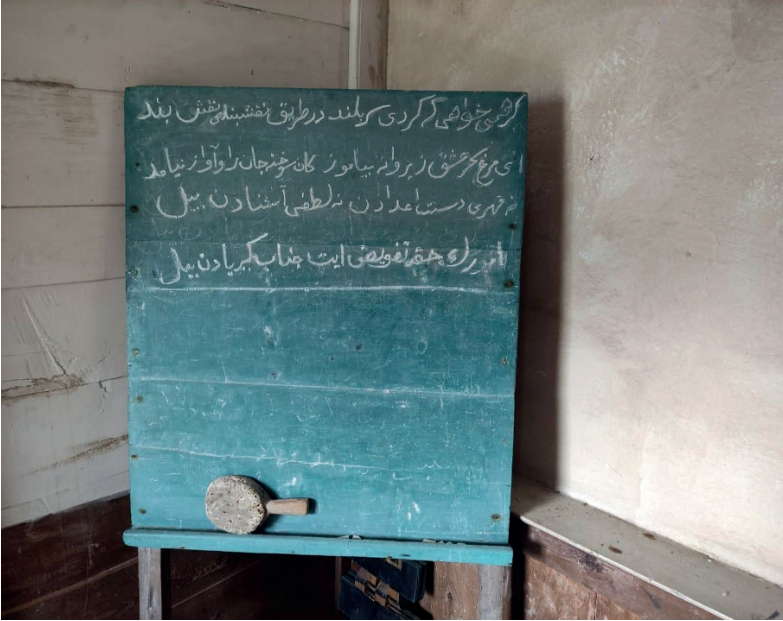 گر همی خواهی که کردی سربلند در طریق نقشبندی نقش بند
ای مرغ سحر عشق ز پروانه بیاموز کان سوخته جان را و آواز نیامد
نه قهری دست اعدادن نه لطفی آشنادن بیل
امورك حقه تفویض ایت جناب کبریادن بیل